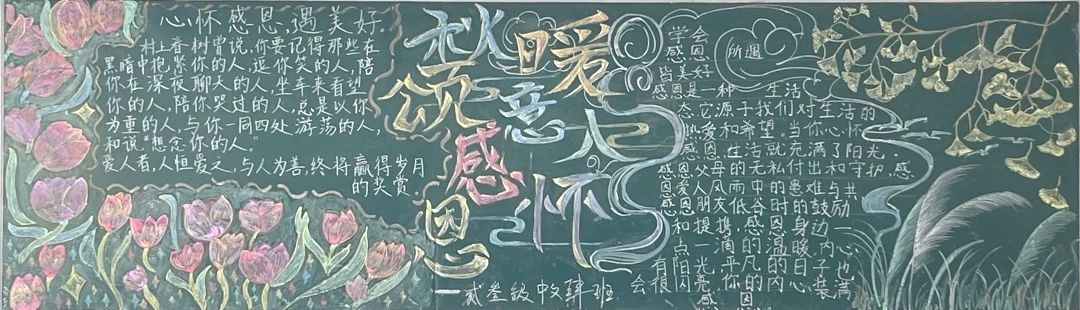 心怀感恩,遇美好。
村上春树曾说,你要记得那些在
黑暗中抱紧你的人,逗你笑的人,陪
你在深夜聊天的人,坐车来看望
你的人,陪你哭过的人,总是以你
为重的人,与你一同四处游荡的人,
和说“想念你的人。”
爱人者,人恒爱之,与人为善,终将赢得岁月
的奖赏。
秋日暖
意入怀
颂感恩
贰叁级中文班
学会
感恩
所遇
皆美好
感恩是一种生活
态,它源于我们对生活的
热爱和希望。当你心怀
感恩,生活就充满了阳光。
感恩父母的无私付出和守护,感
恩爱人风雨中的患难与共
感恩朋友低谷时的鼓励
和提携,感恩身边一
点一滴的温暖,内心
有阳光,平凡的日子也
会很闪亮,你的内心装满
感恩